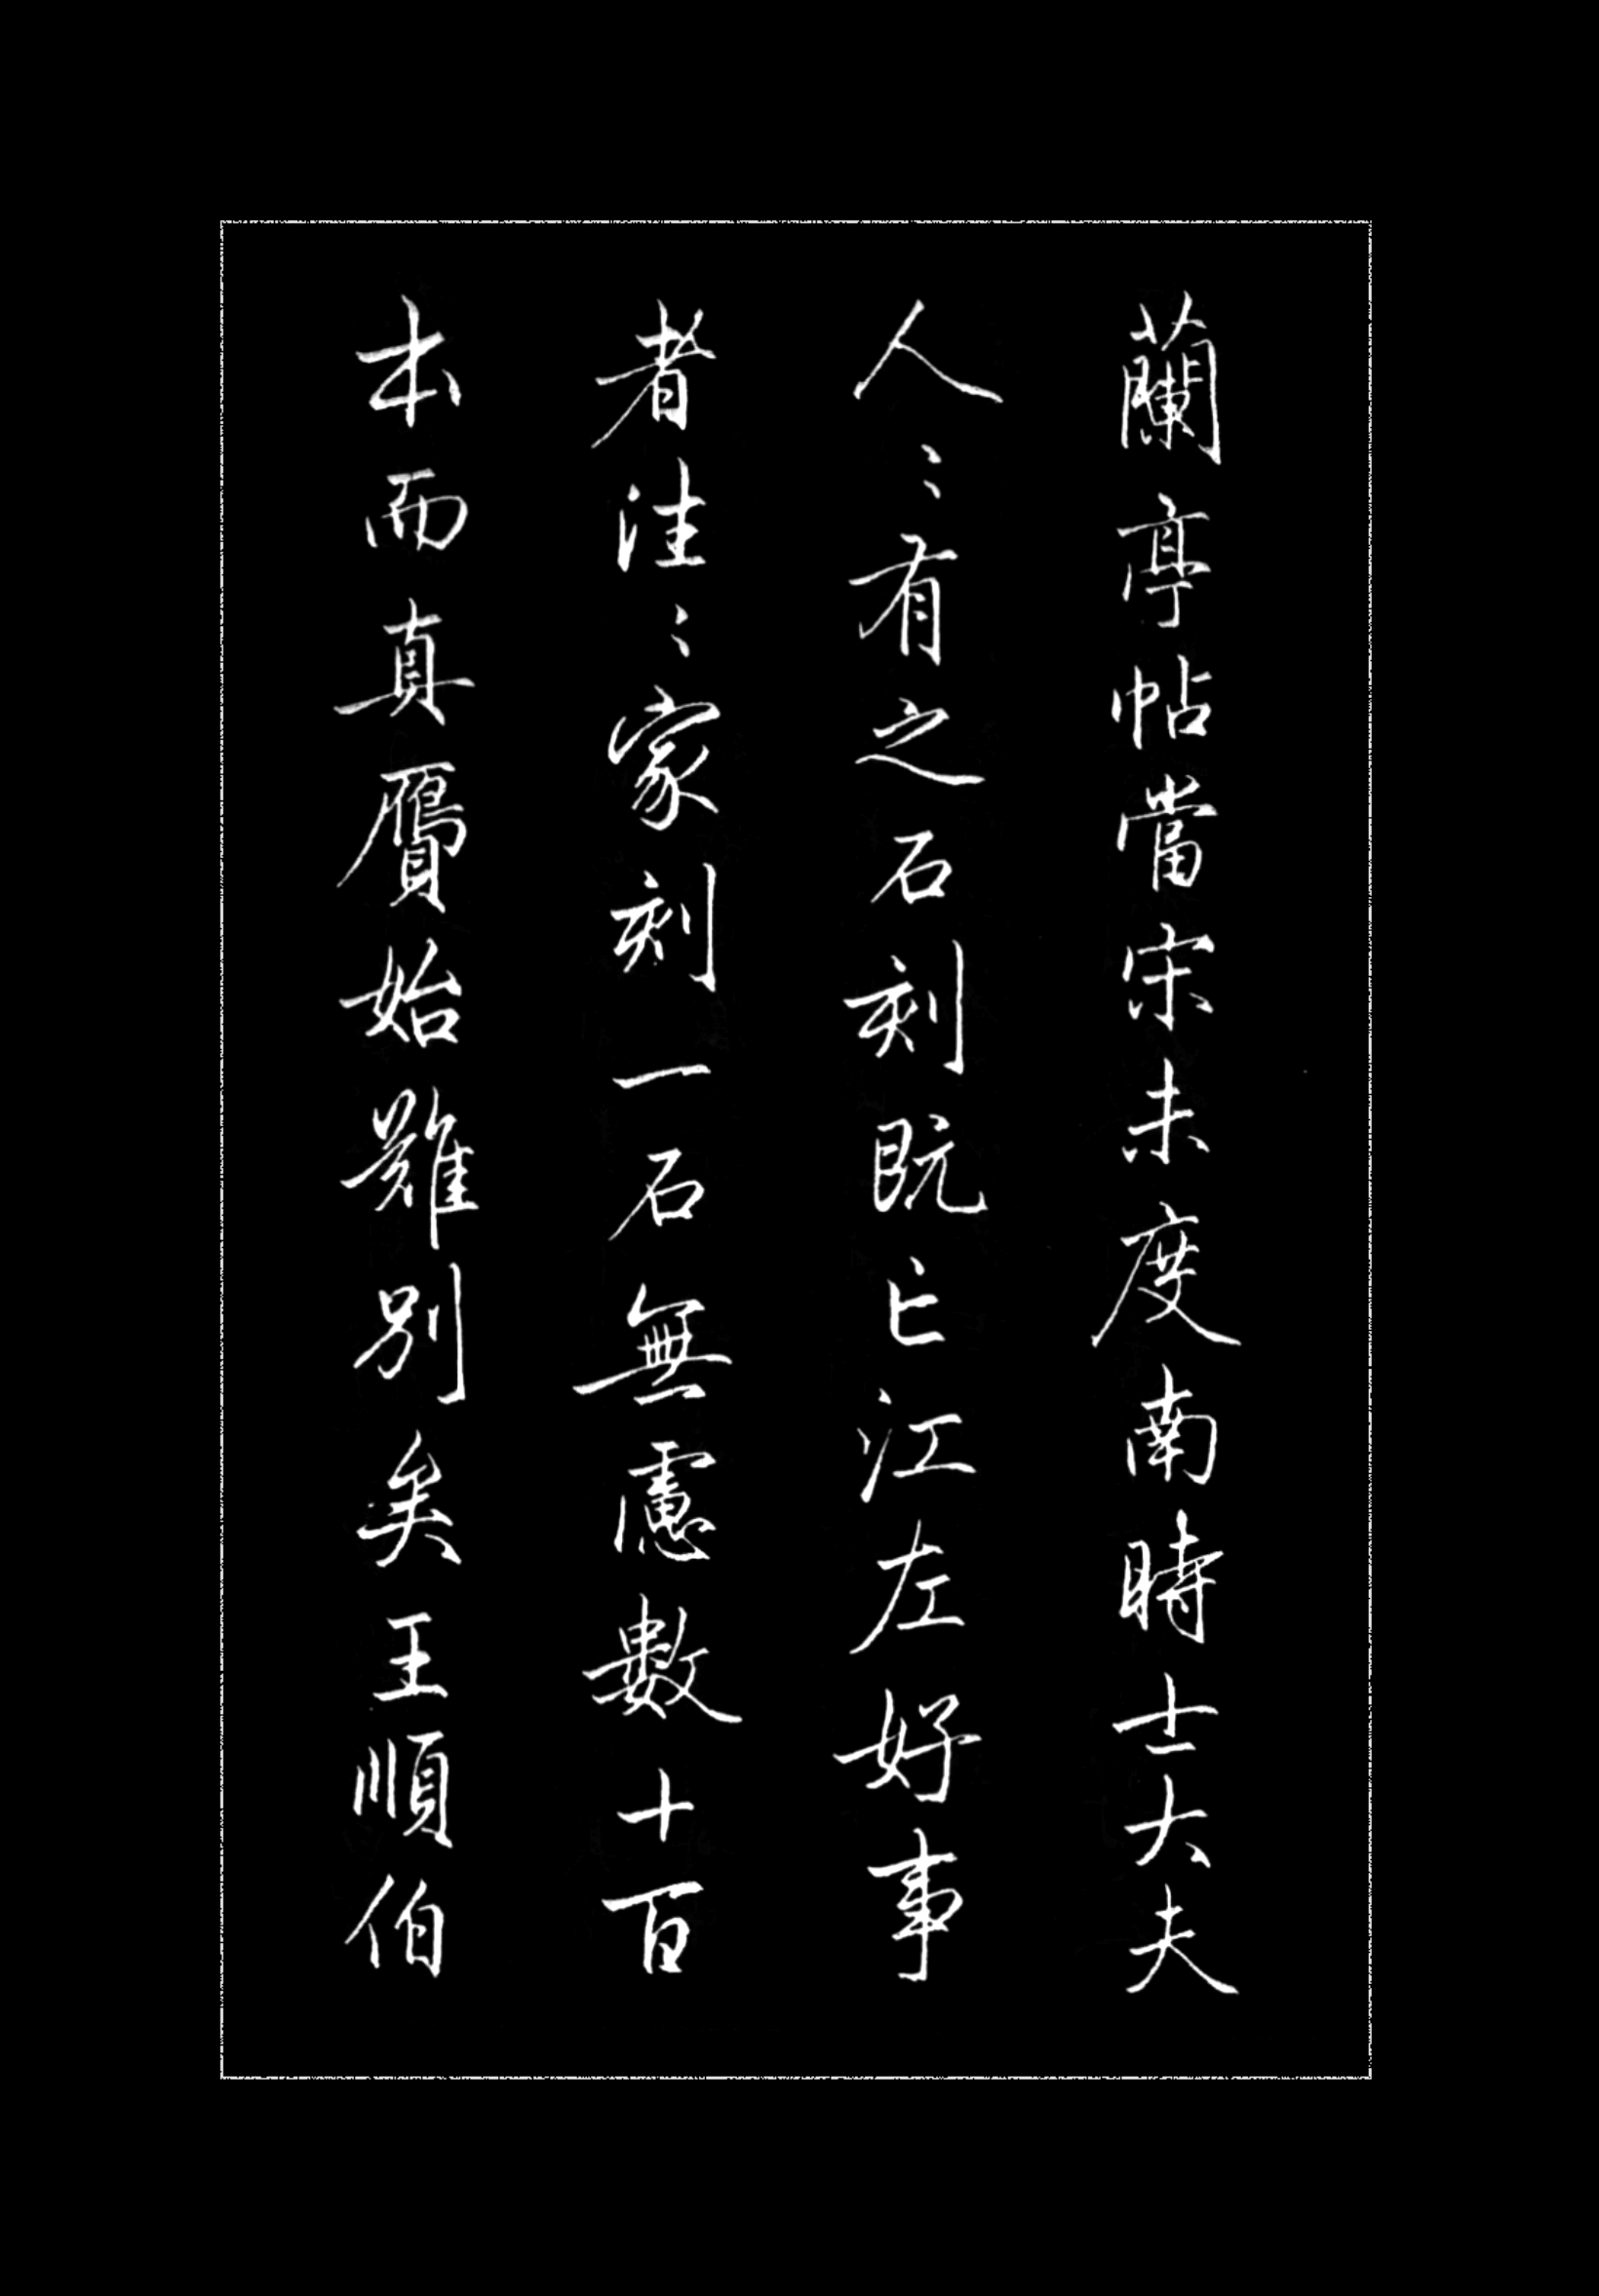 蘭亭帖當宋未度南時士大夫
人〻有之石刻既亡江左好事
者往〻家刻一石無慮數十百
本而真贋始難別矣王順伯